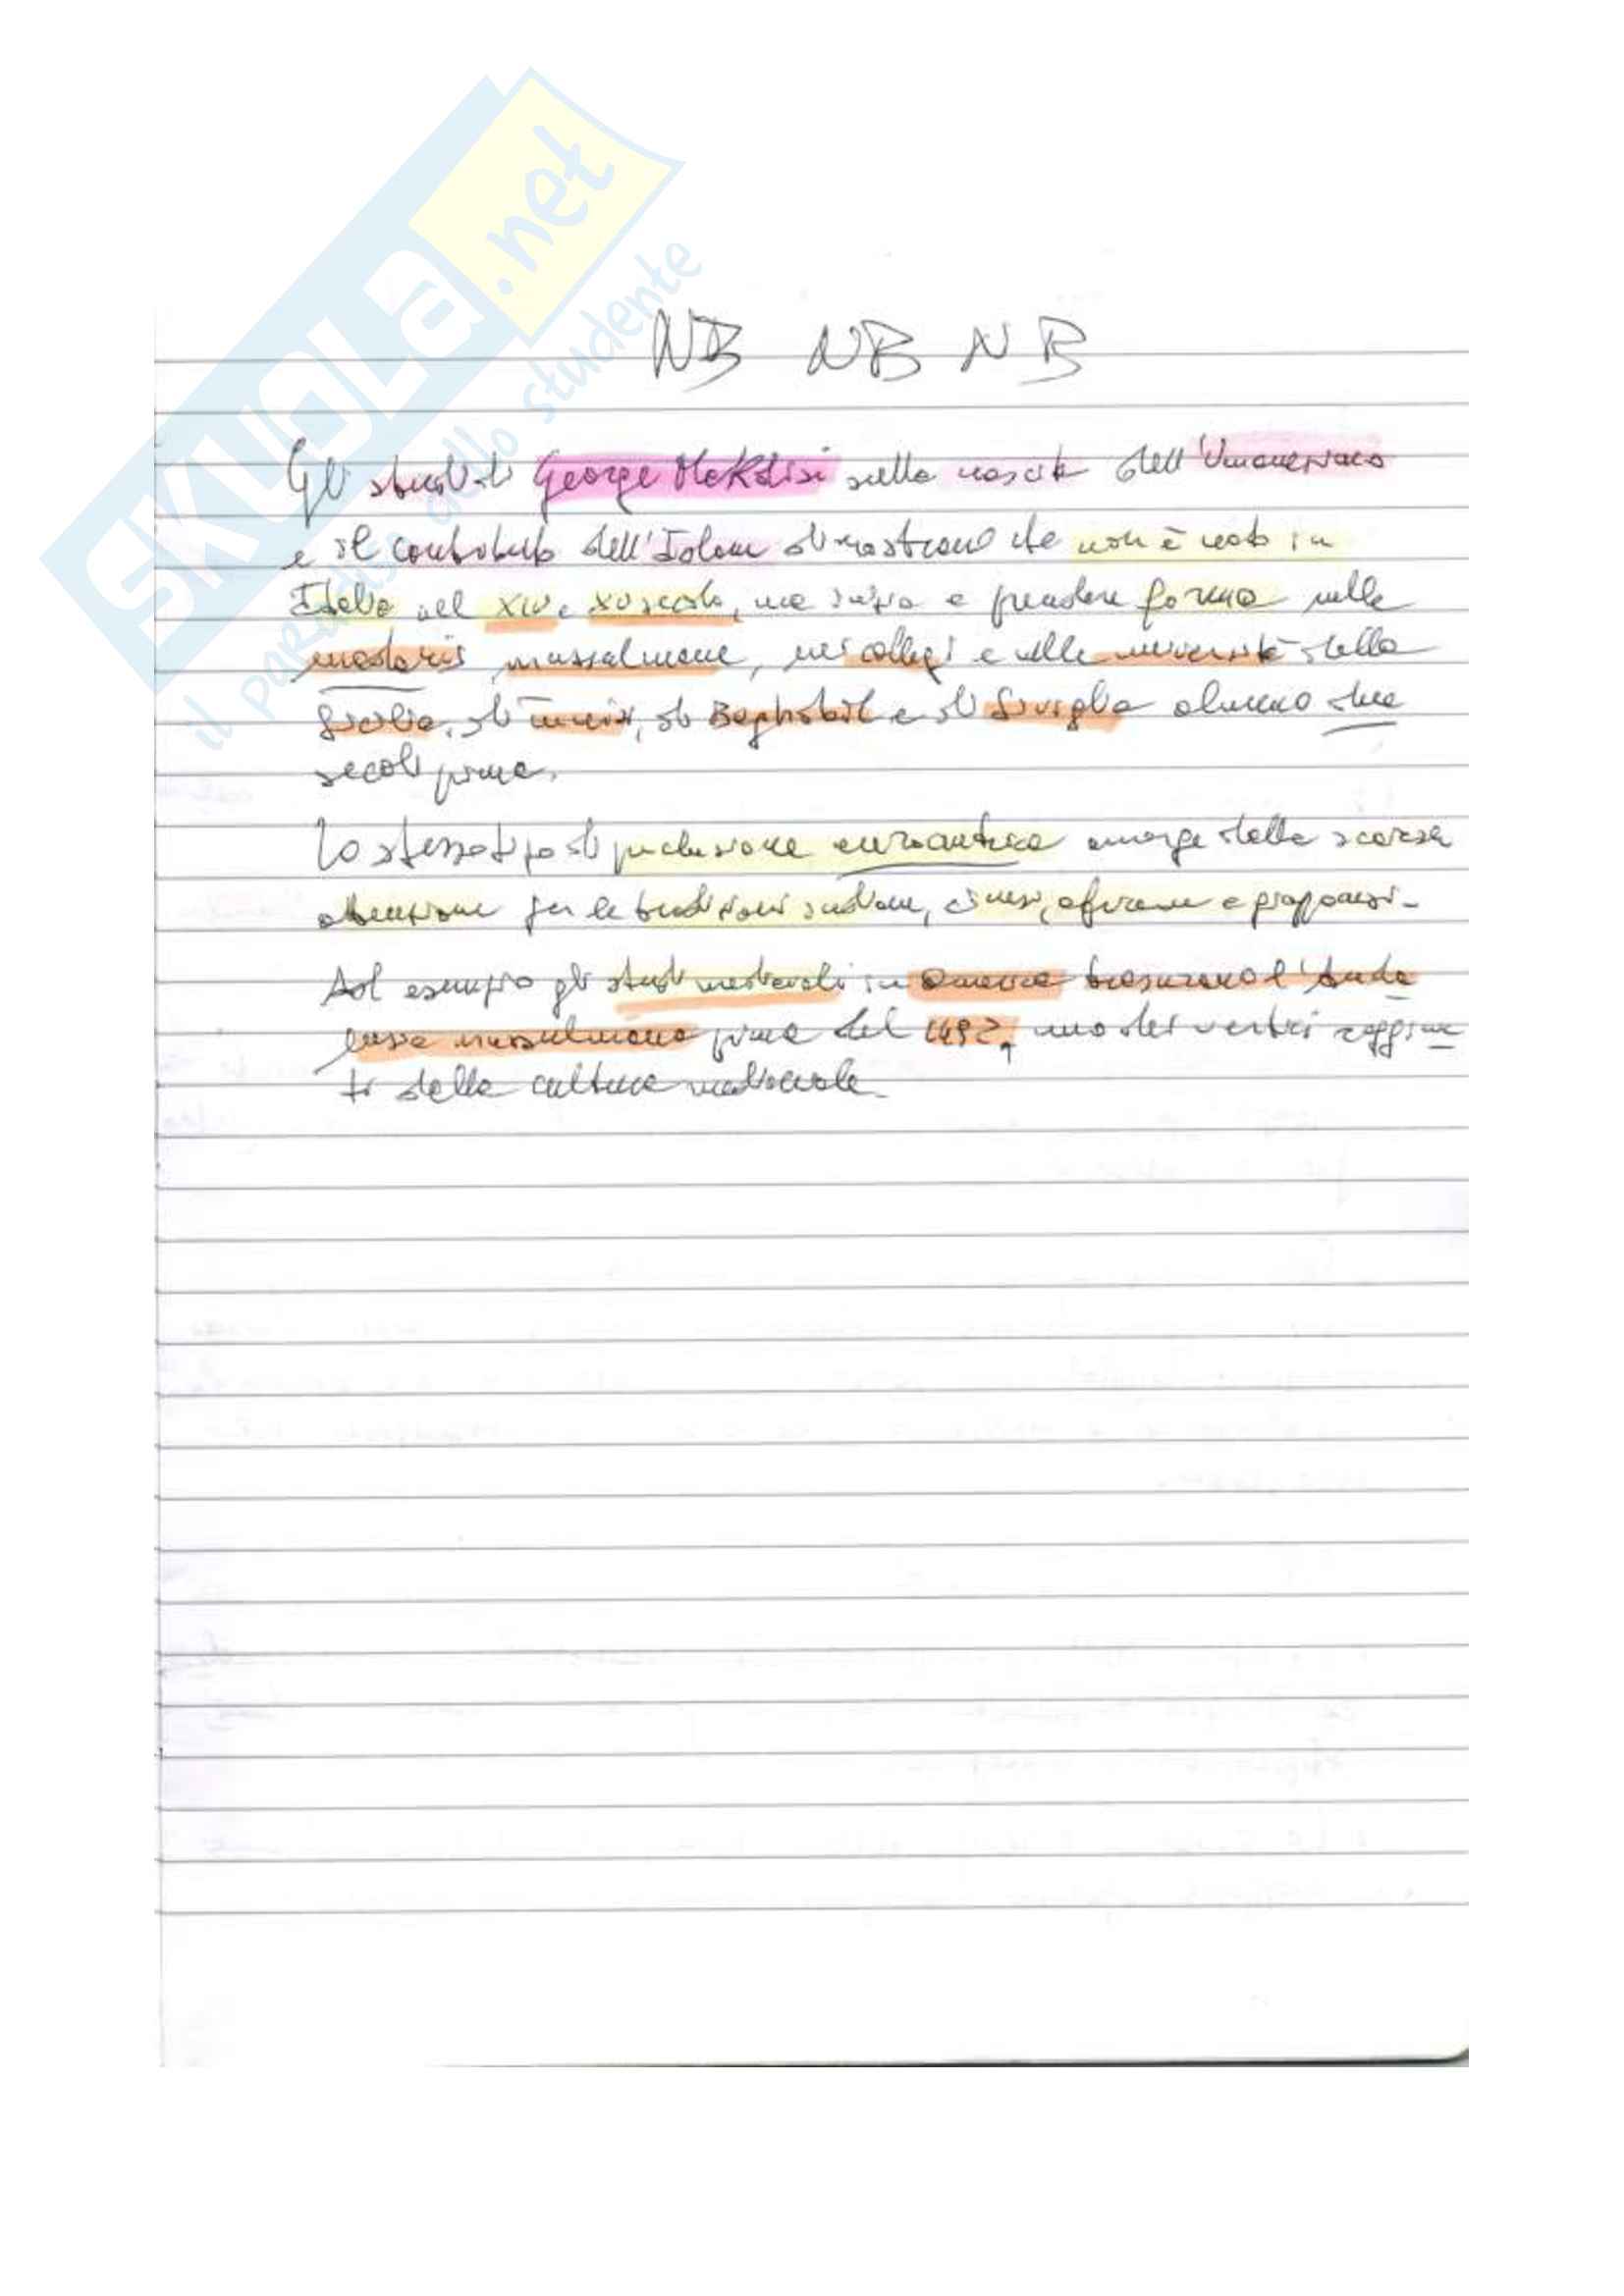 SKUOLA.net
il paradiso dello studente
NB NB NB
Gli studi di George Makdisi sulla nascita dell'Umanesimo
e il contributo dell'Islam dimostrano che non è nato in
Italia nel XIV e XV secolo, ma inizia a prendere forma nelle
madaris musulmane, nei collegi e nelle università della
Sicilia, di Tunisi, di Baghdad e di Siviglia almeno due
secoli prima.
Lo stesso tipo di preclusione eurocentrica emerge dalla scarsa
attenzione per le tradizioni indiane, cinesi, africane e giapponesi.
Ad esempio gli studi medievali in America trascurano l'Anda
lusia musulmana prima del 1492, uno dei vertici raggiun
ti della cultura medioevale.